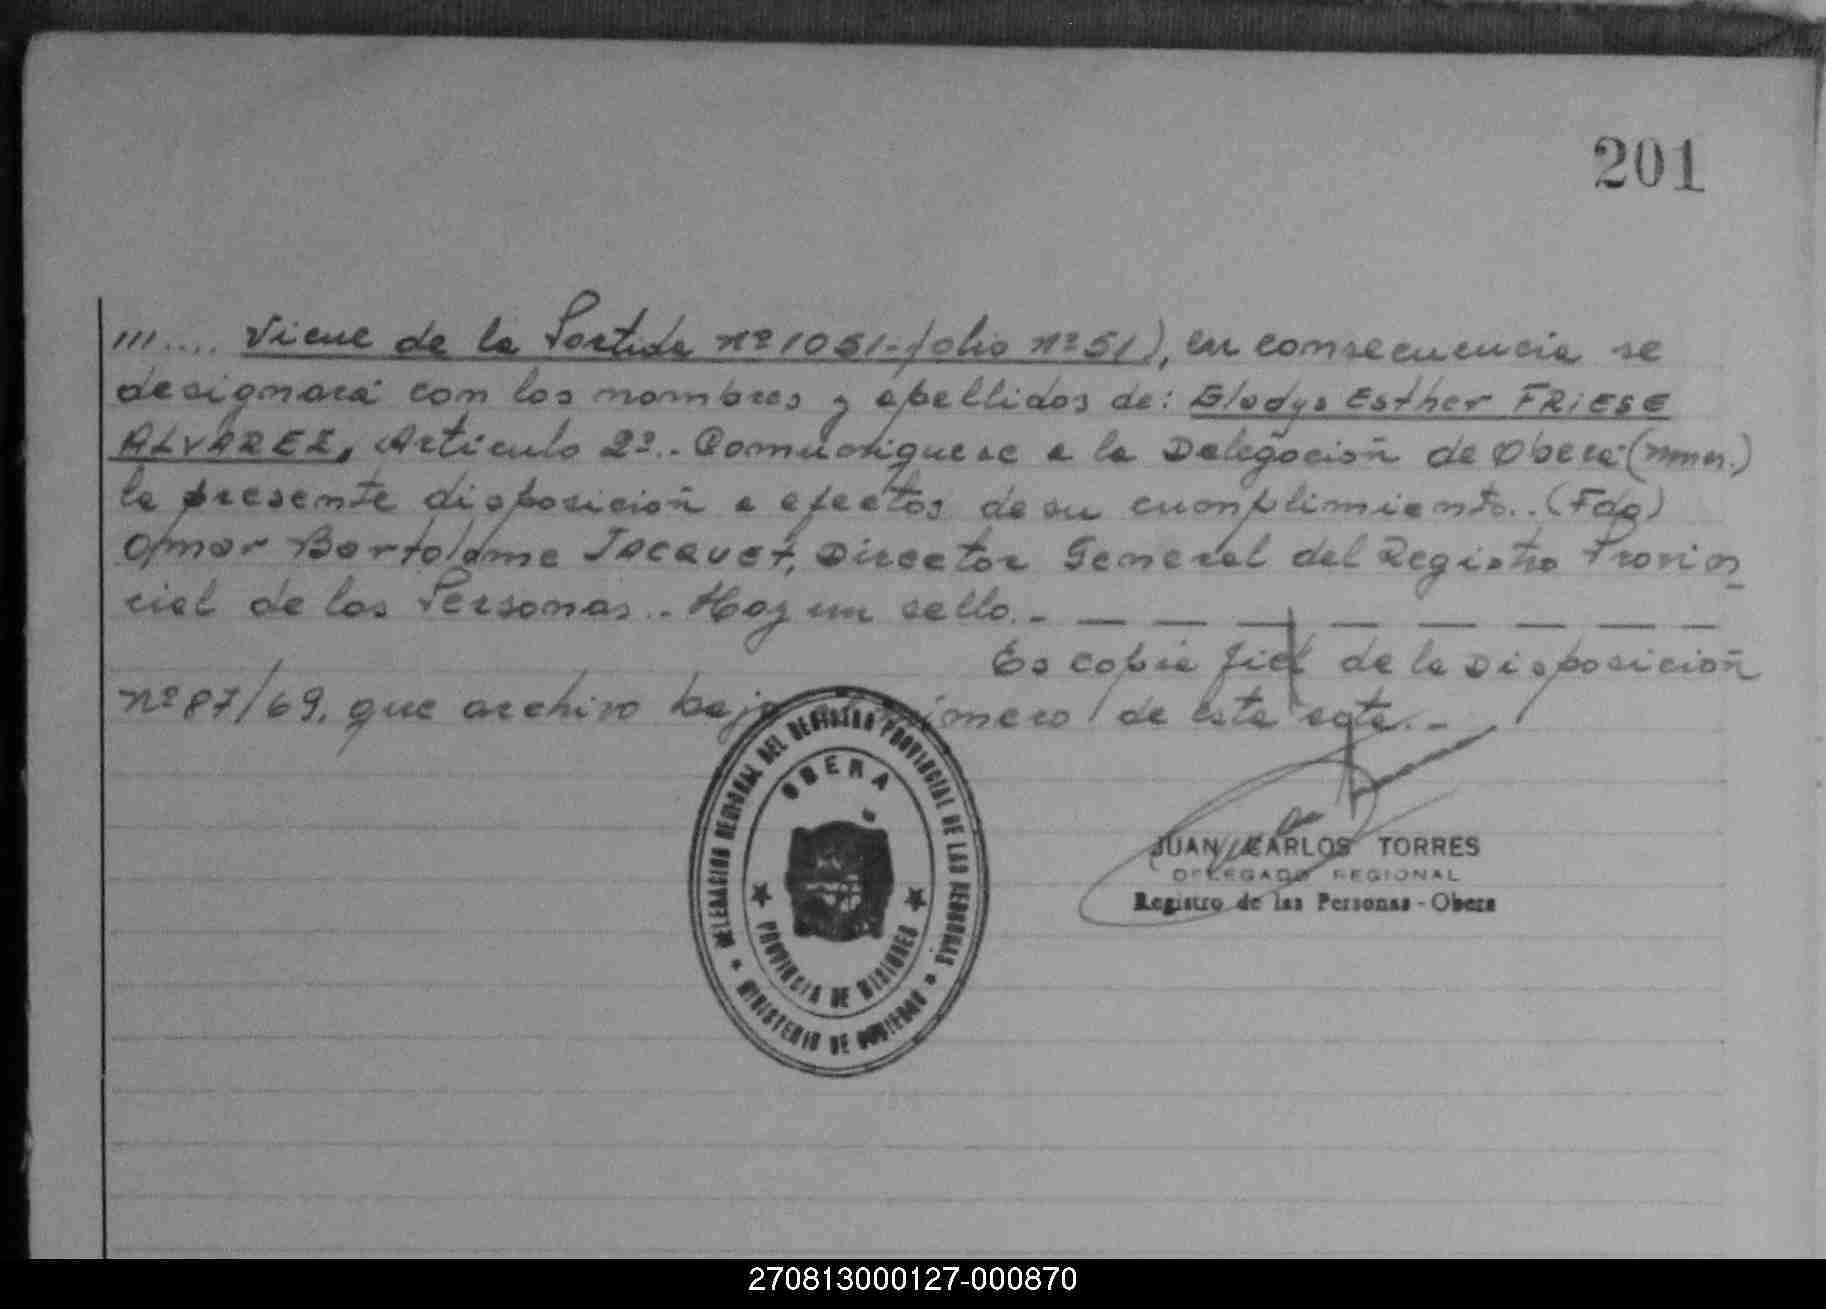 201
///.... Viene de la Partida nº 1051-folio nº 51), en consecuencia se
designará con los nombres y apellidos de: Gladys Esther FRIESE
ALVAREZ, Artículo 2º.- Comuníquese a la Delegación de Oberá (mnes.)
la presente disposición a efectos de su cumplimiento.. (Fdo)
Omar Bartolome JACQUET, Director General del Registro Provin
cial de las Personas.. Hay un sello.-
Es copia fiel de la Disposición
nº 87/69, que archivo bajo número de esta acta.-
DELEGACION REGIONAL DEL REGISTRO PROVINCIAL DE LAS PERSONAS
MINISTERIO DE GOBIERNO
OBERA
PROVINCIA DE MISIONES
JUAN CARLOS TORRES
DELEGADO REGIONAL
Registro de las Personas - Obera
270813000127-000870